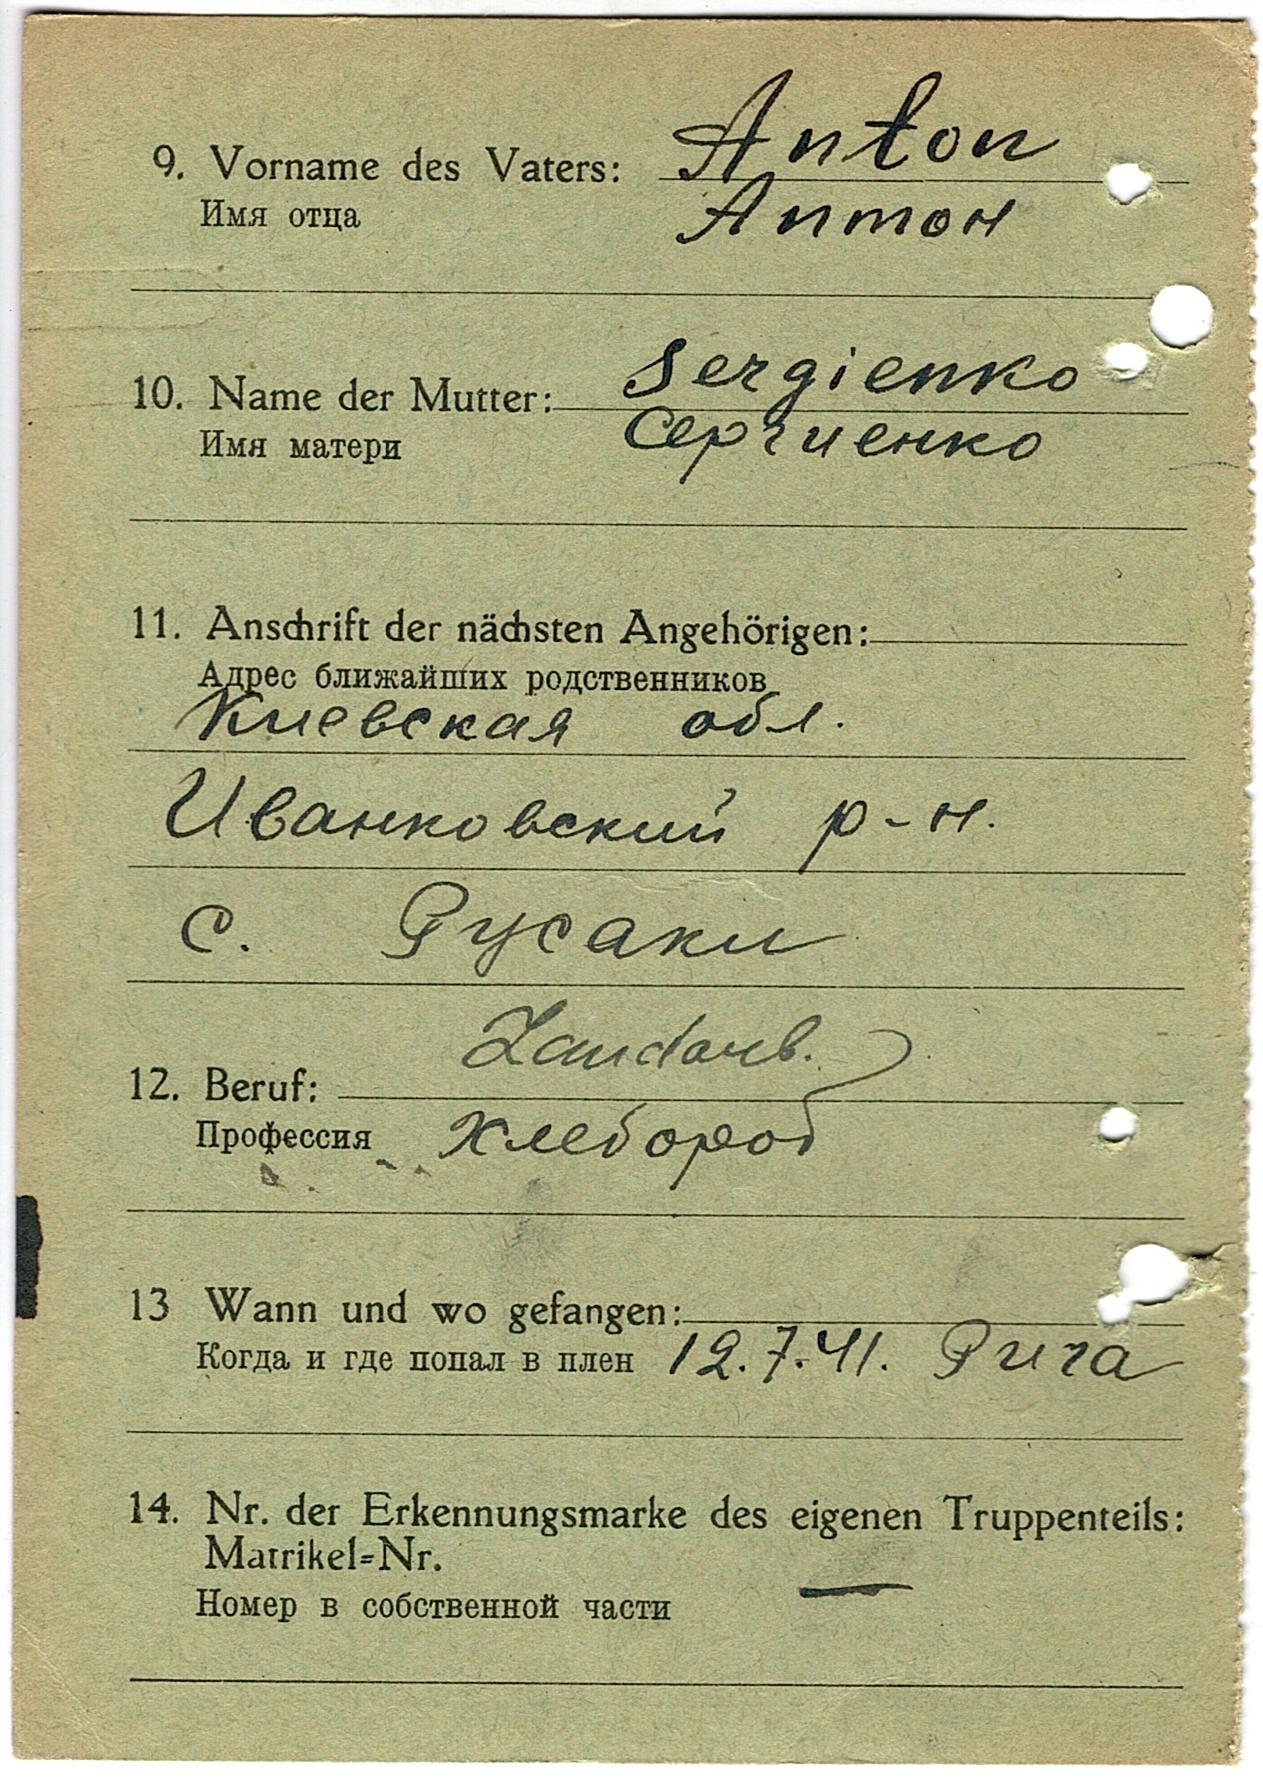 9. Vorname des Vaters: Anton
Имя отца Антон
10. Name der Mutter: Sergienko
Имя матери Сергиенко
11. Anschrift der nächsten Angehörigen:
Адрес ближайших родственников
Киевская обл.
Иванковский р-н.
с. Русаки
12. Beruf: Landarb.
Профессия хлебороб
13 Wann und wo gefangen:
Когда и где попал в плен 12.7.41. Рига
14. Nr. der Erkennungsmarke des eigenen Truppenteils:
Matrikel=Nr. —
Номер в собственной части